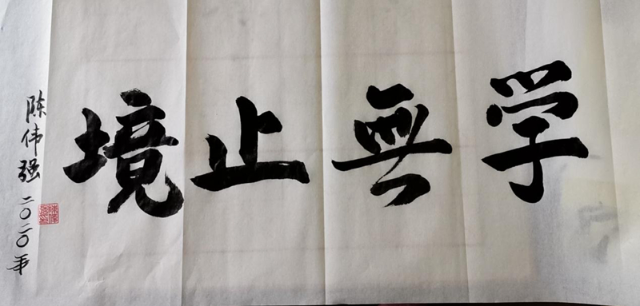 学無止境
陈伟强二〇二〇年